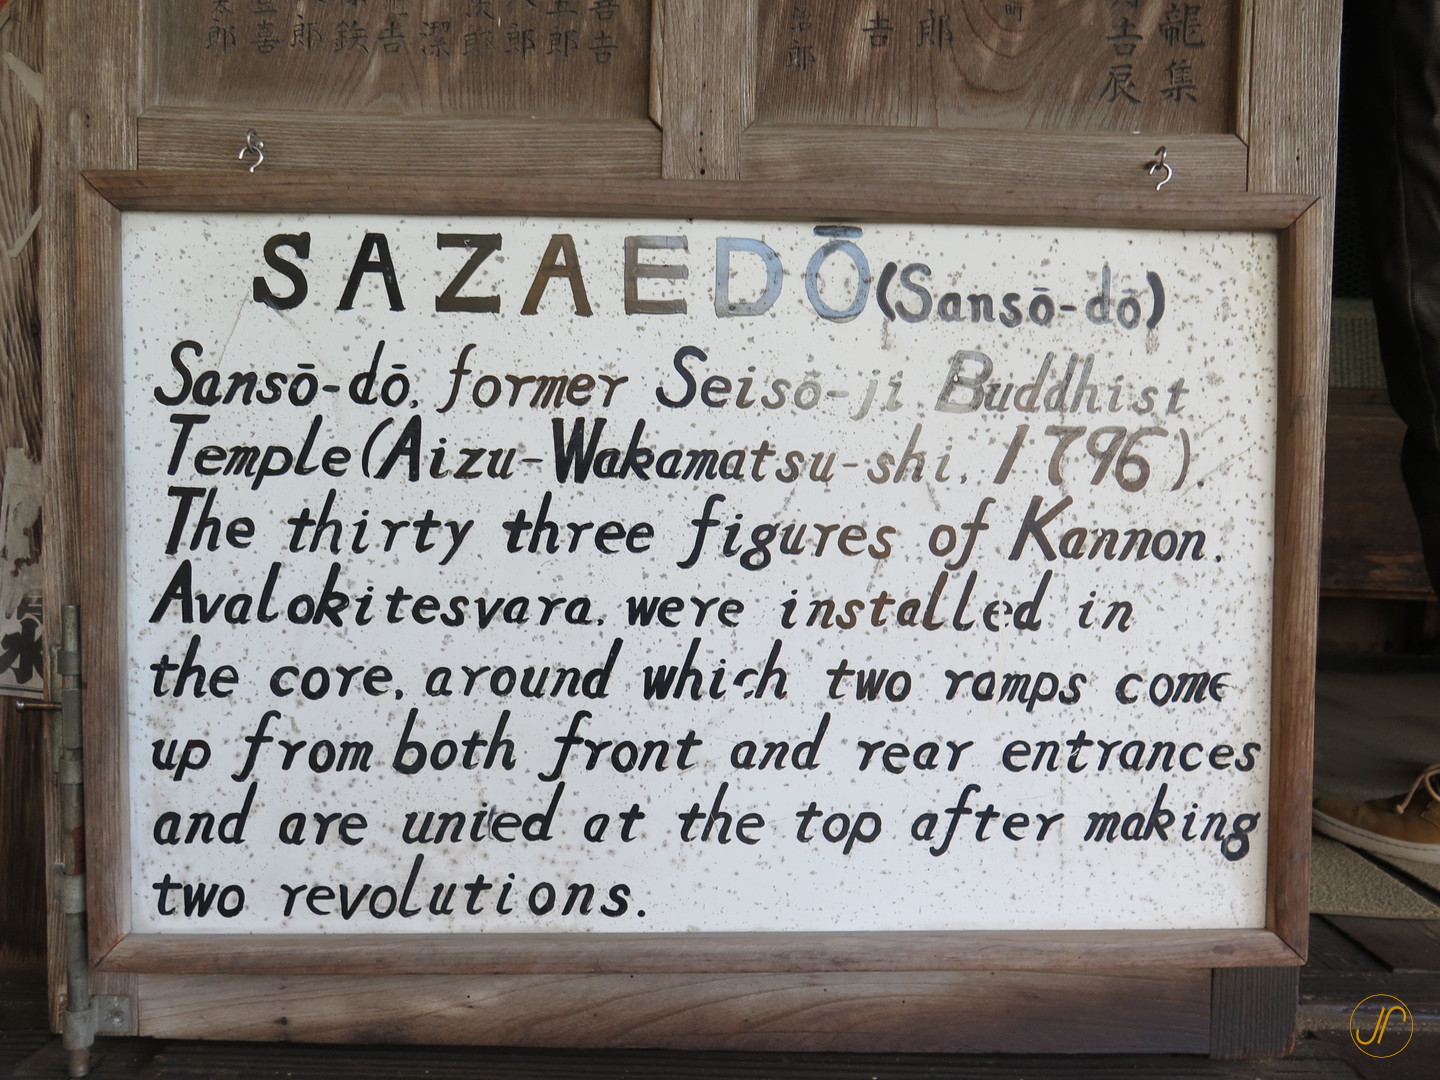 龍集
吉辰
郎
吉
治郎
SAZAEDŌ (Sansō-dō)
Sansō-dō, former Seisō-ji Buddhist
Temple (Aizu-Wakamatsu-shi, 1796).
The thirty three figures of Kannon.
Avalokitesvara, were installed in
the core, around which two ramps come
up from both front and rear entrances
and are unied at the top after making
two revolutions.